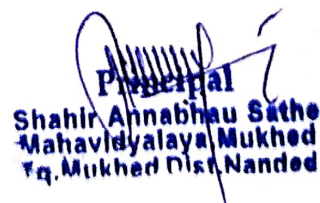 Principal
Shahir Annabhau Sathe
Mahavidyalaya, Mukhed
Tq. Mukhed Dist. Nanded